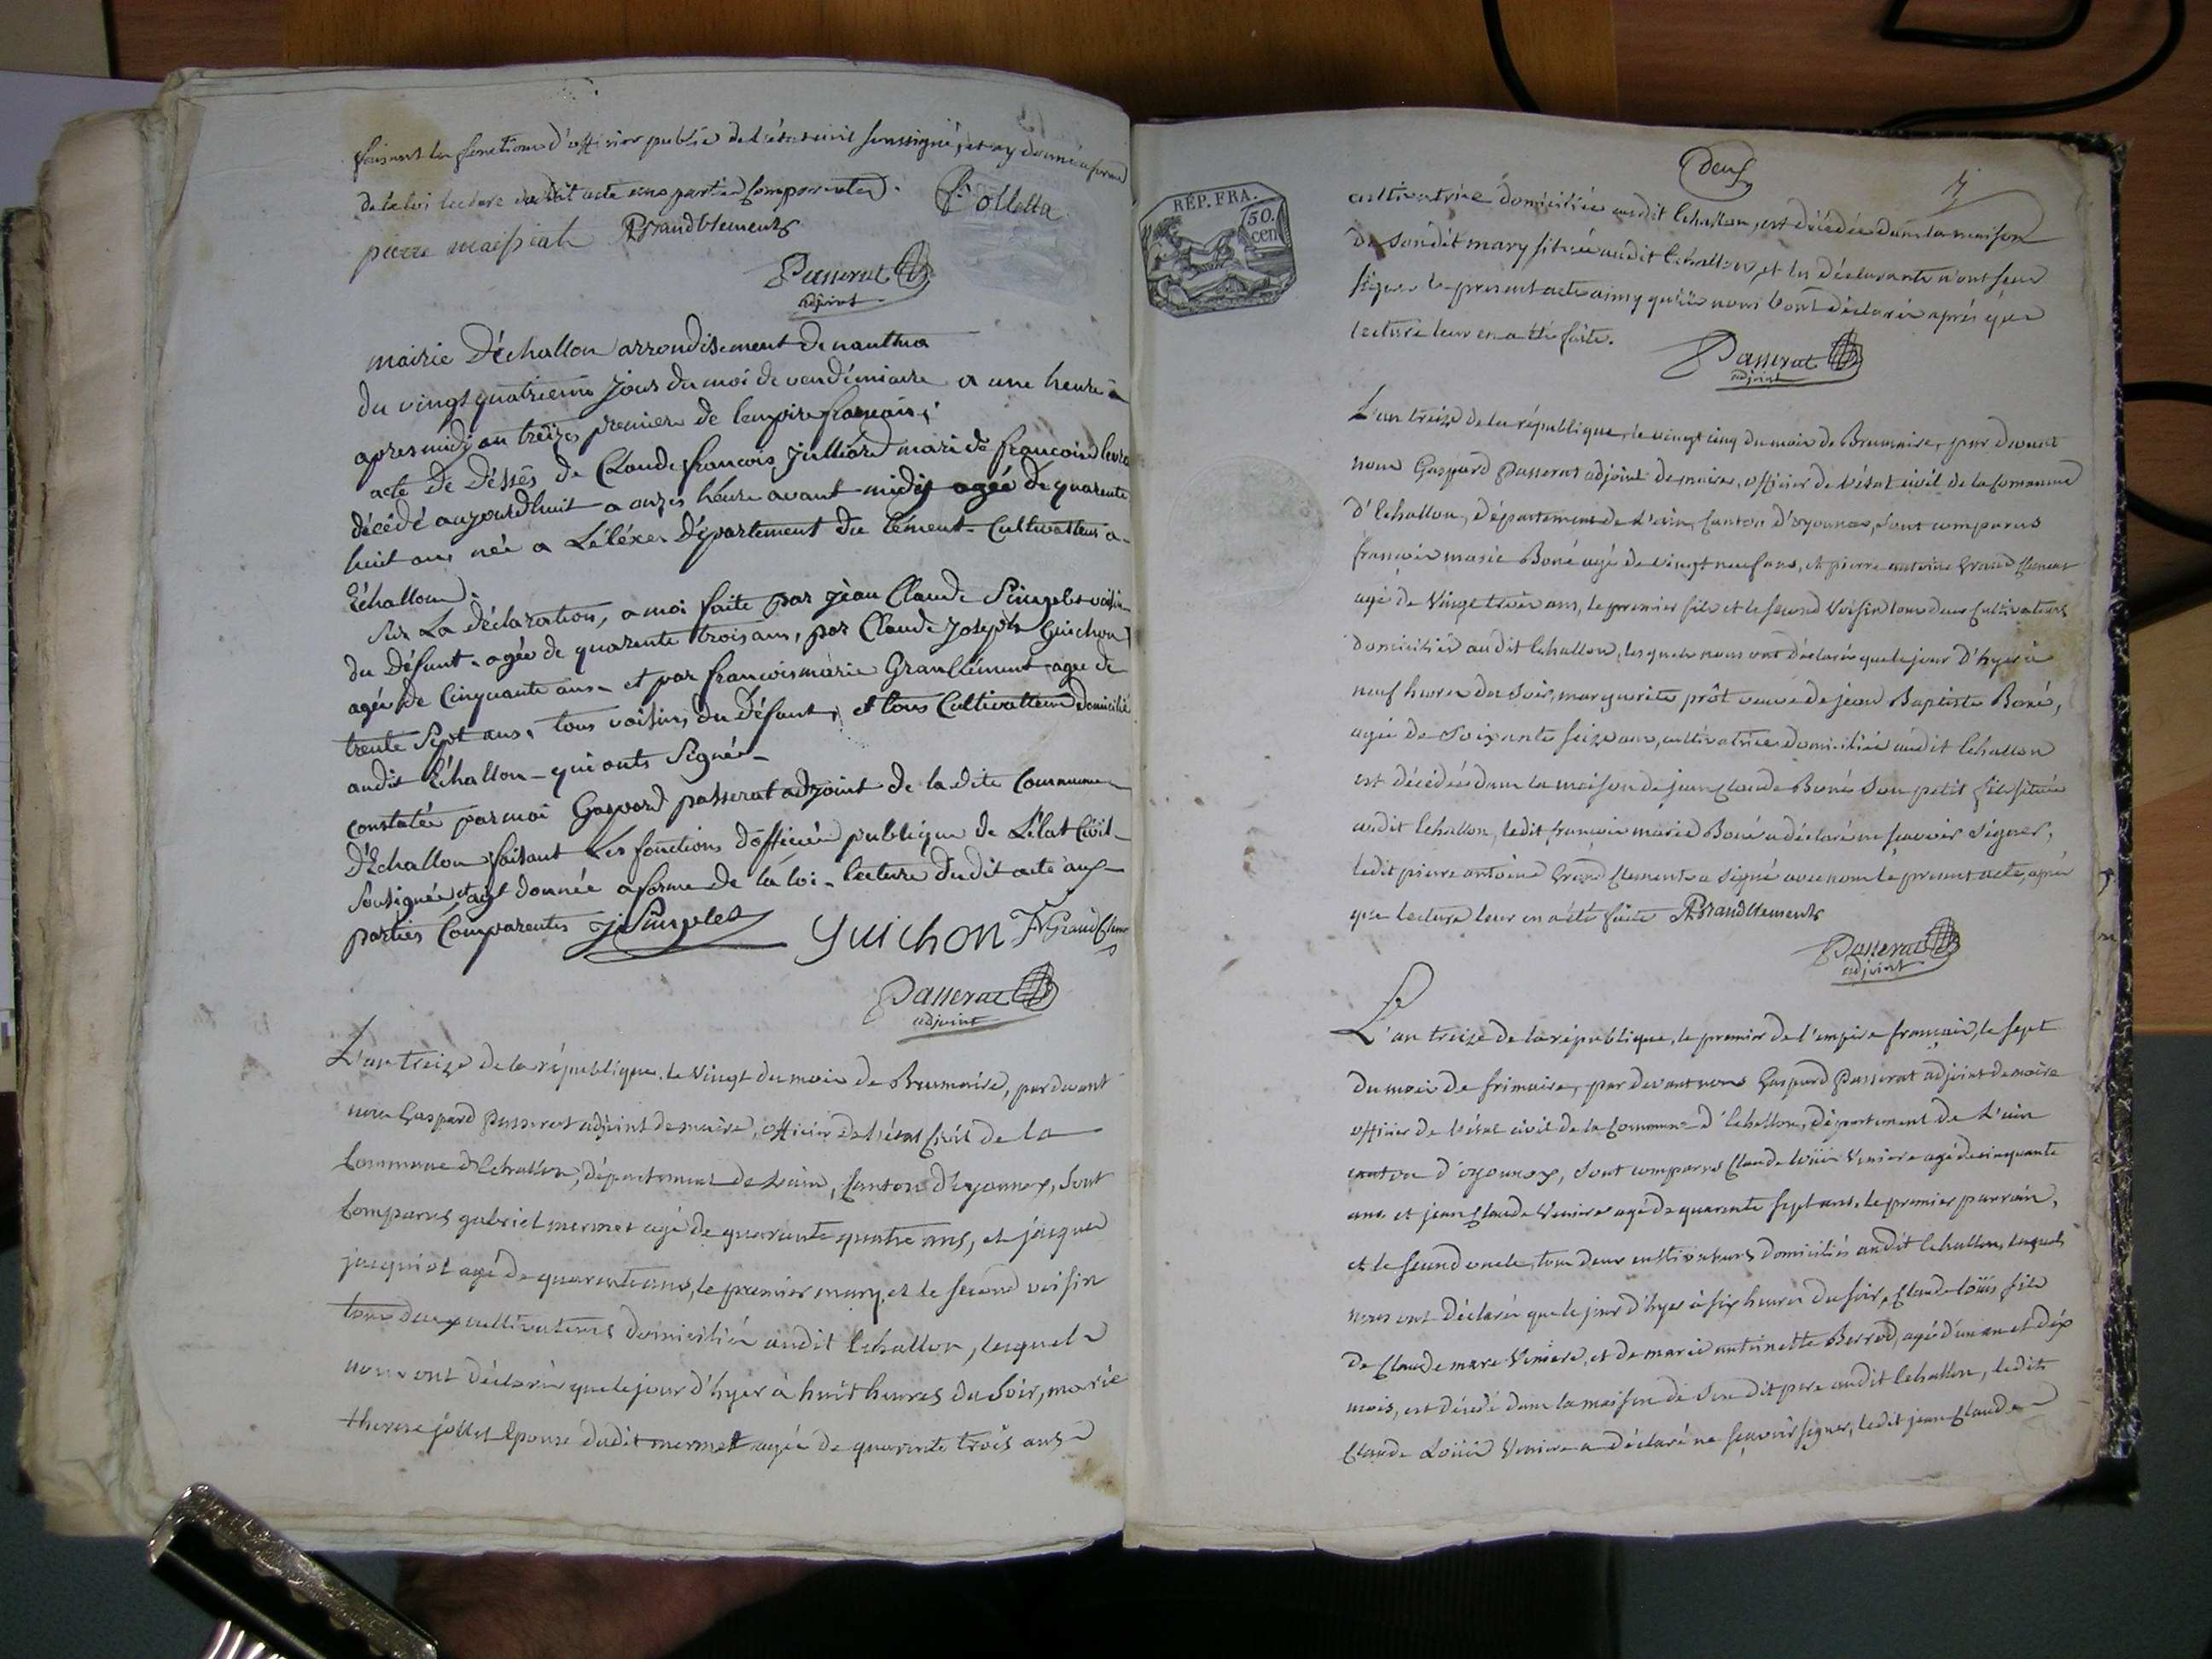 faisant les fonctions d'officier public de l'état civil soussigné, et ay donné a forme
de la loi lecture dudit acte aux parties comparentes.
pierre maissiat AGrandClement F. Colletta
Passerat
adjoint
mairie D'échallon arrondisement De nantua
du vingt quatrieme jour du moi de vendémiaire a une heure
apres midy an treize, premier de lempire francais,
acte de Déssês de Claude françois Julliard mari de francoise
décédé aujourdhuit a onzes héure avant midy agée de quarente
huit ans née a Léléxes Département du Lément Cultivatteur a
Échallon.
Sur La déclaration, a moi faite par jean Claude voisin
du Défunt agée de quarente trois ans, par Claude Joseph Guichon
agée de Cinquante ans et par francois marie Granclément agee de
trente Sept ans, tous voisins du Défunt, et tous Cultivatteur domicilié
audit Échallon qui onts Signée
constatée par moi Gaspard passerat adjoint de la dite Commune
D'Échallon faisant Les fonctions d'officier publique de L'état Civil
Sousignée et ayt donnée a forme de la loi lecture dudit acte aux
parties Comparentes guichon F GrandClem
Passerat
adjoint
L'an treize de la république, le vingt du mois de Brumaire, par devant
nous Gaspard Passerat adjoint de maire, officier de l'état civil de la
Commune d'Echallon, département de L'ain, Canton d'oyonnax, sont
Comparus gabriel mermet agé de quarante quatre ans, et jacques
jacquiot agé de quarante ans, le premier mary, et le second voisin
tous deux cultivateurs domiciliés audit Echallon, lesquels
nous ont déclarés que le jour d'hyer à huit heures du soir, marie
therese jollet Epouse dudit mermet agée de quarente trois ans
deux
RÉP. FRA.
50.
cen
cultivatrice domiciliée audit Echallon, est décédée dans la maison
de son dit mary située audit Echallon, et les déclarants n'ont seu
signer le present acte ainsy qu'ils nous l'ont déclarés après que
lecture leur en a été faite.
Passerat
adjoint
L'an treize de la république, le vingt cinq du mois de Brumaire, par devant
nous Gaspard Passerat adjoint de maire, officier de l'état civil de la Commune
d'Echallon, département de L'ain, Canton d'oyonnax, sont comparus
françois marie Boné agé de vingt neuf ans, et pierre antoine Grand Clement
agé de Vingt trois ans, le premier fils et le second Voisin tous deux cultivateurs
domiciliés audit Echallon, lesquels nous ont déclarés que le jour d'hyer à
neuf heures du soir, marguerite prôt veuve de jean Baptiste Boné,
agée de Soixante seize ans, cultivatrice domiciliée audit Echallon
est décédée dans la maison de jean Claude Boné son petit fils située
audit Echallon, ledit françois marie Boné a déclaré ne sçavoir signer,
ledit pierre antoine Grand Clement a signé avec nous le present acte, après
que lecture leur en a été faite AGrandClement
Passerat
adjoint
L'an treize de la république, le premier de l'empire français, le sept
du mois de frimaire, par devant nous Gaspard Passerat adjoint de maire
officier de l'état civil de la Commune d'Echallon, département de L'ain
canton d'oyonnax, sont comparus Claude loüis Veniere agé de cinquante
ans et jean Claude Veniere agé de quarante sept ans, le premier parrain,
et le second oncle, tous deux cultivateurs domiciliés audit Echallon, lesquels
nous ont déclarés que le jour d'hyer à six heures du soir, Claude loüis fils
de Claude marc Veniere, et de marie antoinette Berrod, agé d'un an et dix
mois, est décédé dans la maison de son dit pere audit Echallon, ledit
Claude Loüis Veniere a déclaré ne sçavoir signer, ledit jean Claude